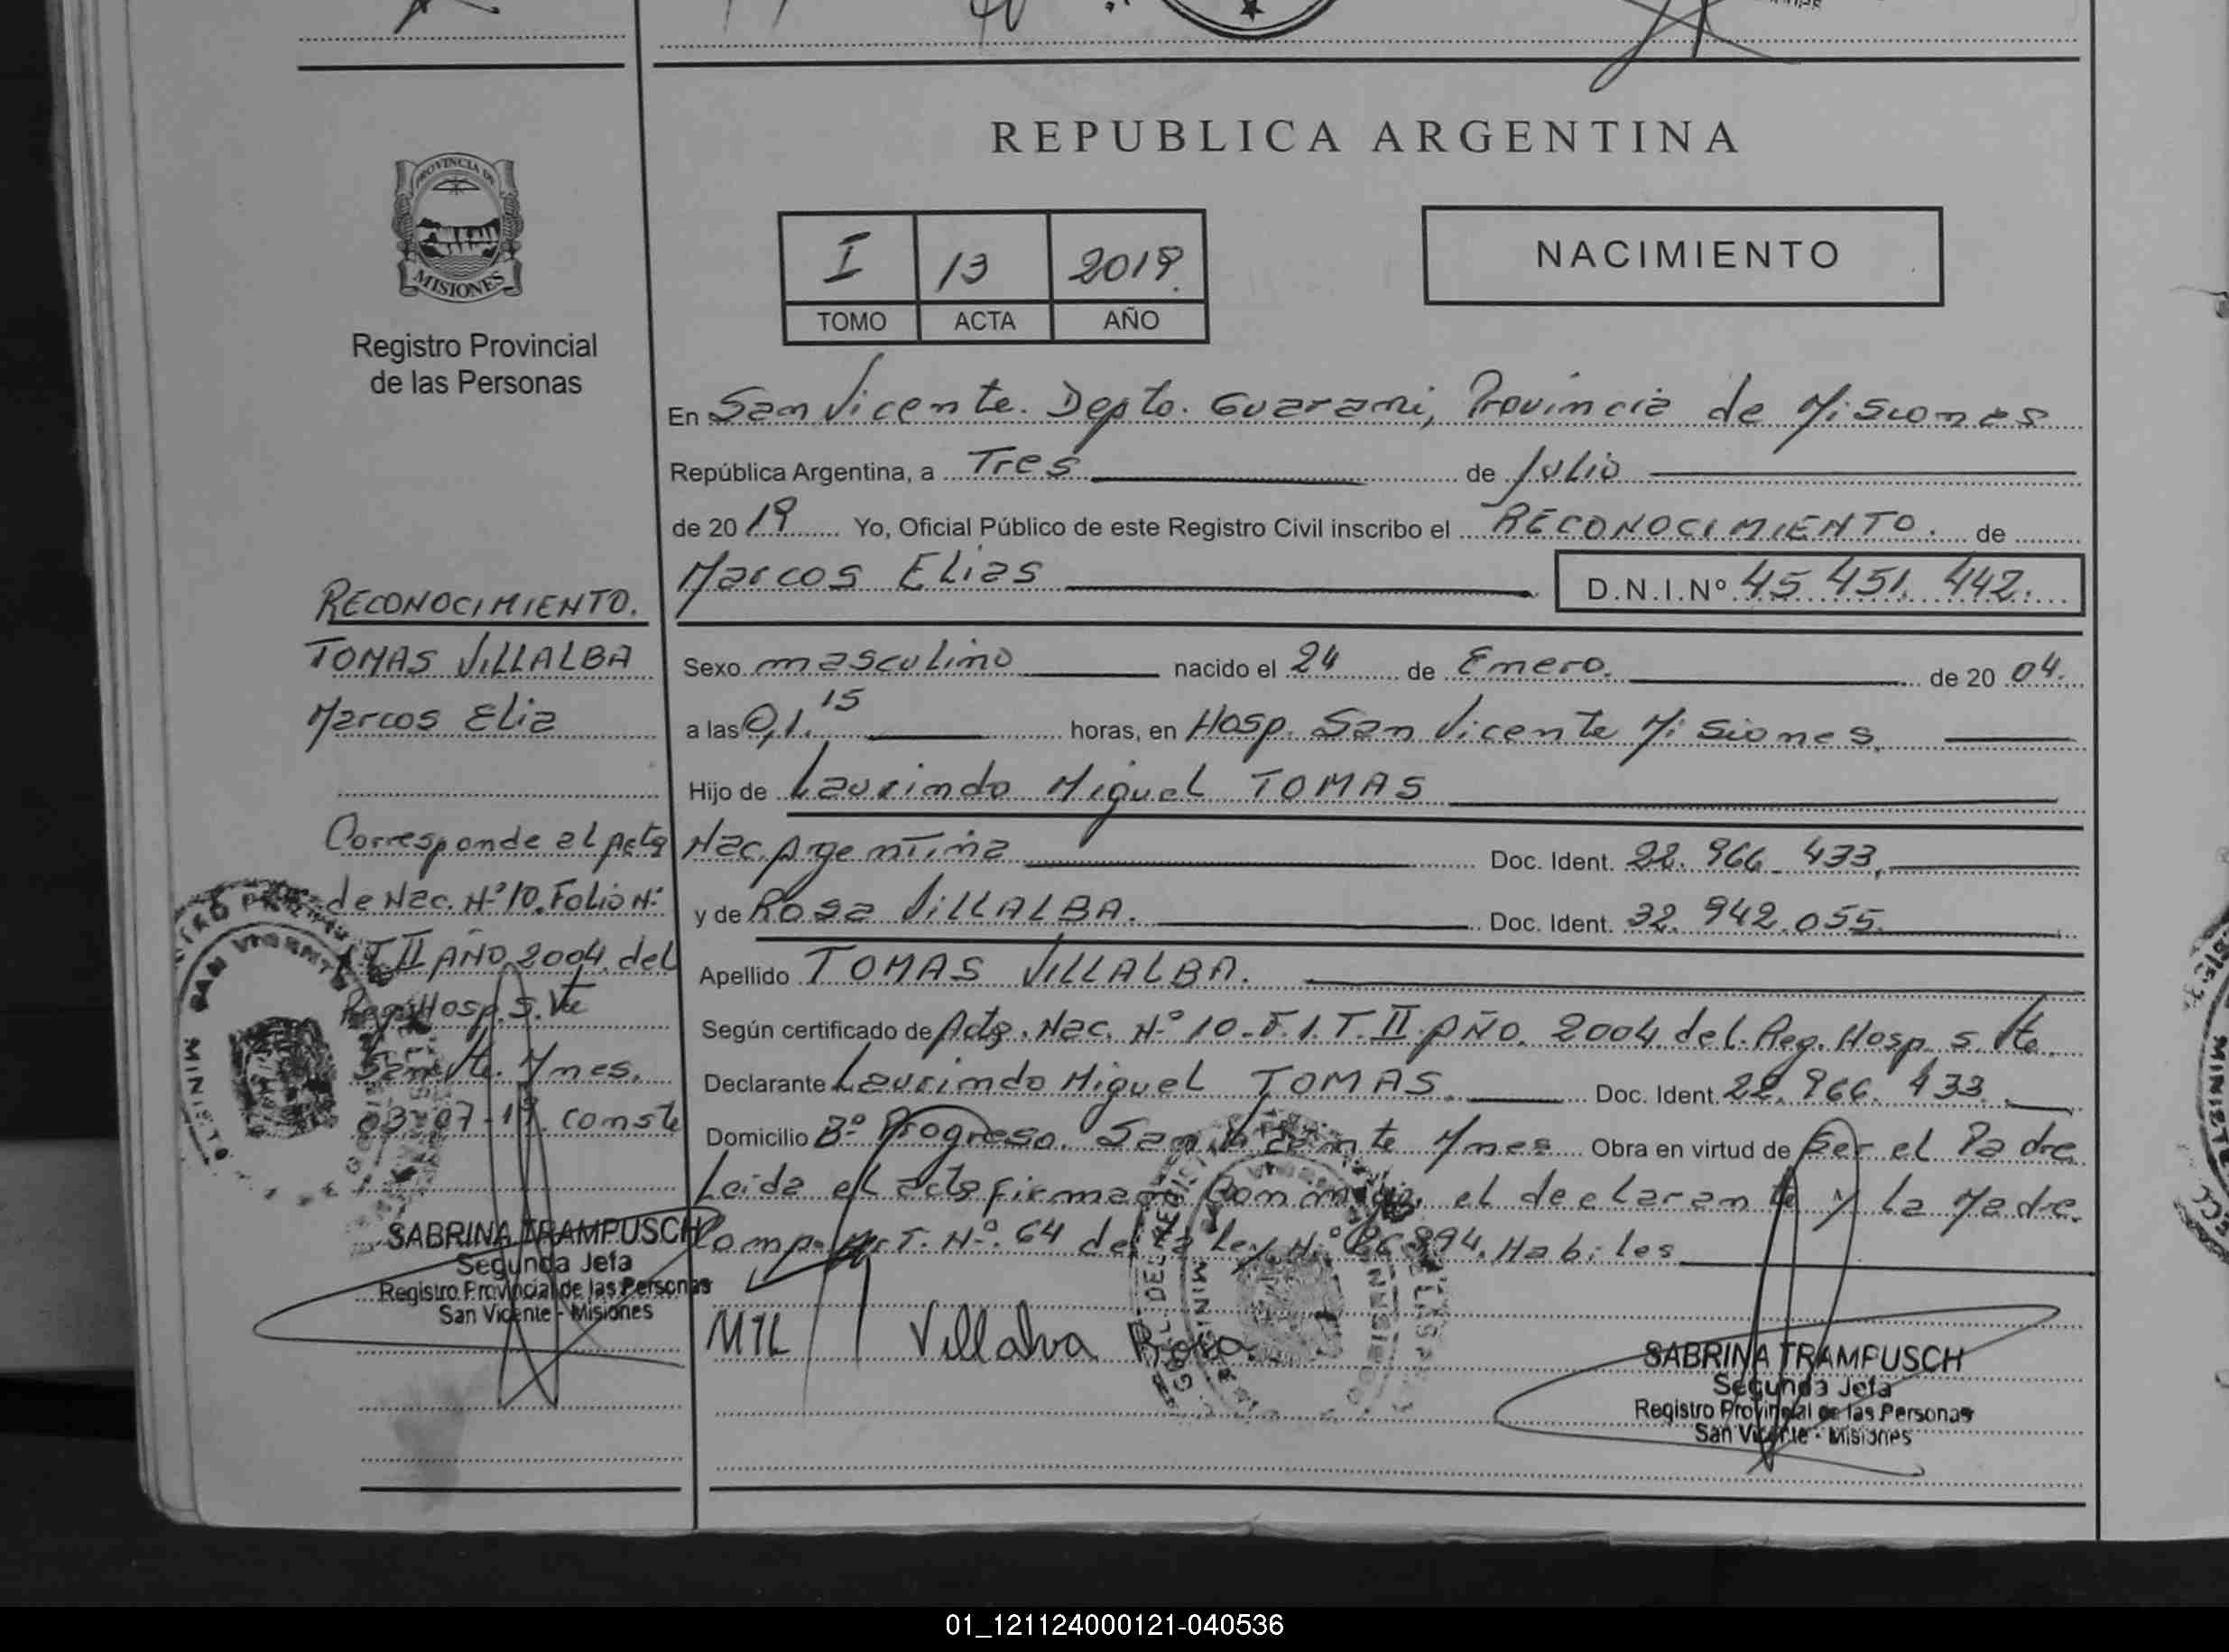 REPUBLICA ARGENTINA
PROVINCIA DE
MISIONES
Registro Provincial
de las Personas
I 13 2019.
TOMO ACTA AÑO
NACIMIENTO
En San Vicente. Depto. Guarani, Provincia de Misiones
República Argentina, a Tres de Julio
de 2019 Yo, Oficial Público de este Registro Civil inscribo el RECONOCIMIENTO. de
Marcos Elias D.N.I.Nº 45.451.442.
Sexo masculino nacido el 24 de Enero. de 2004.
a las 01.15 horas, en Hosp. San Vicente Misiones.
Hijo de Laurindo Miguel TOMAS
Nac. Argentina Doc. Ident. 22.966.433,
y de Rosa VILLALBA. Doc. Ident. 32.942.055.
Apellido TOMAS VILLALBA.
Según certificado de Acta. Nac. Nº 10-F.1.T.II.AÑO. 2004 del. Reg. Hosp. S. Vte.
Declarante Laurindo Miguel TOMAS. Doc. Ident. 22.966.433.
Domicilio Bº Progreso. San Vicente Mnes Obra en virtud de Ser el Padre
Leida el acta firman conmigo, el declarante y la Madre.
Comp. Art. Nº. 64 de la Ley Nº 26994. Habiles
MTL Villalva Rosa
SABRINA TRAMPUSCH
Segunda Jefa
Registro Provincial de las Personas
San Vicente - Misiones
RECONOCIMIENTO.
TOMAS VILLALBA
Marcos Elia
Corresponde al Acta
de Nac. Nº 10. Folio Nº
II AÑO 2004. del
Reg. Hosp. S. Vte
San Vte. Mnes.
03-07-19. conste
SAN VICENTE
SABRINA TRAMPUSCH
Segunda Jefa
Registro Provincial de las Personas
San Vicente - Misiones
01_121124000121-040536